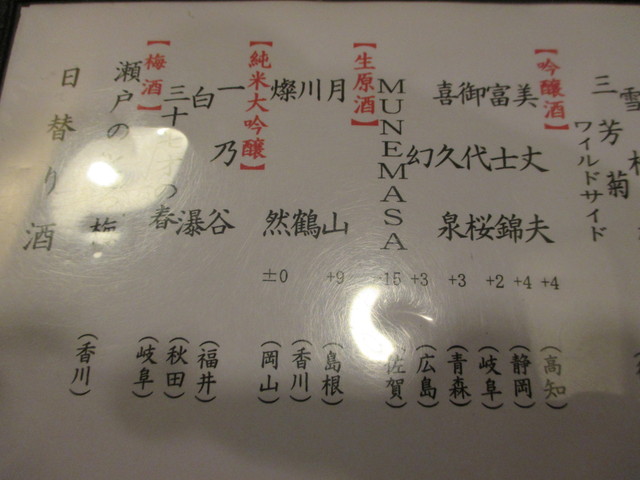 雪
三芳菊
ワイルドサイド
【吟醸酒】
美丈夫 +4 (高知)
富士錦 +4 (静岡)
御代桜 +2 (岐阜)
喜久泉 +3 (青森)
幻 +3 (広島)
MUNEMASA -15 (佐賀)
【生原酒】
月山 +9 (島根)
川鶴 (香川)
燦然 ±0 (岡山)
【純米大吟醸】
一乃谷 (福井)
白瀑 (秋田)
三十 の春 (岐阜)
【梅酒】
瀬戸の 梅 (香川)
日替り酒